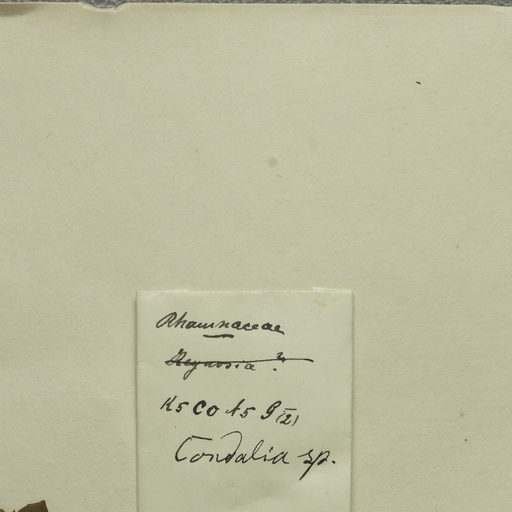 Rhamnaceae
Reynosia ?
K5 C0 A5 G(2)
Condalia sp.